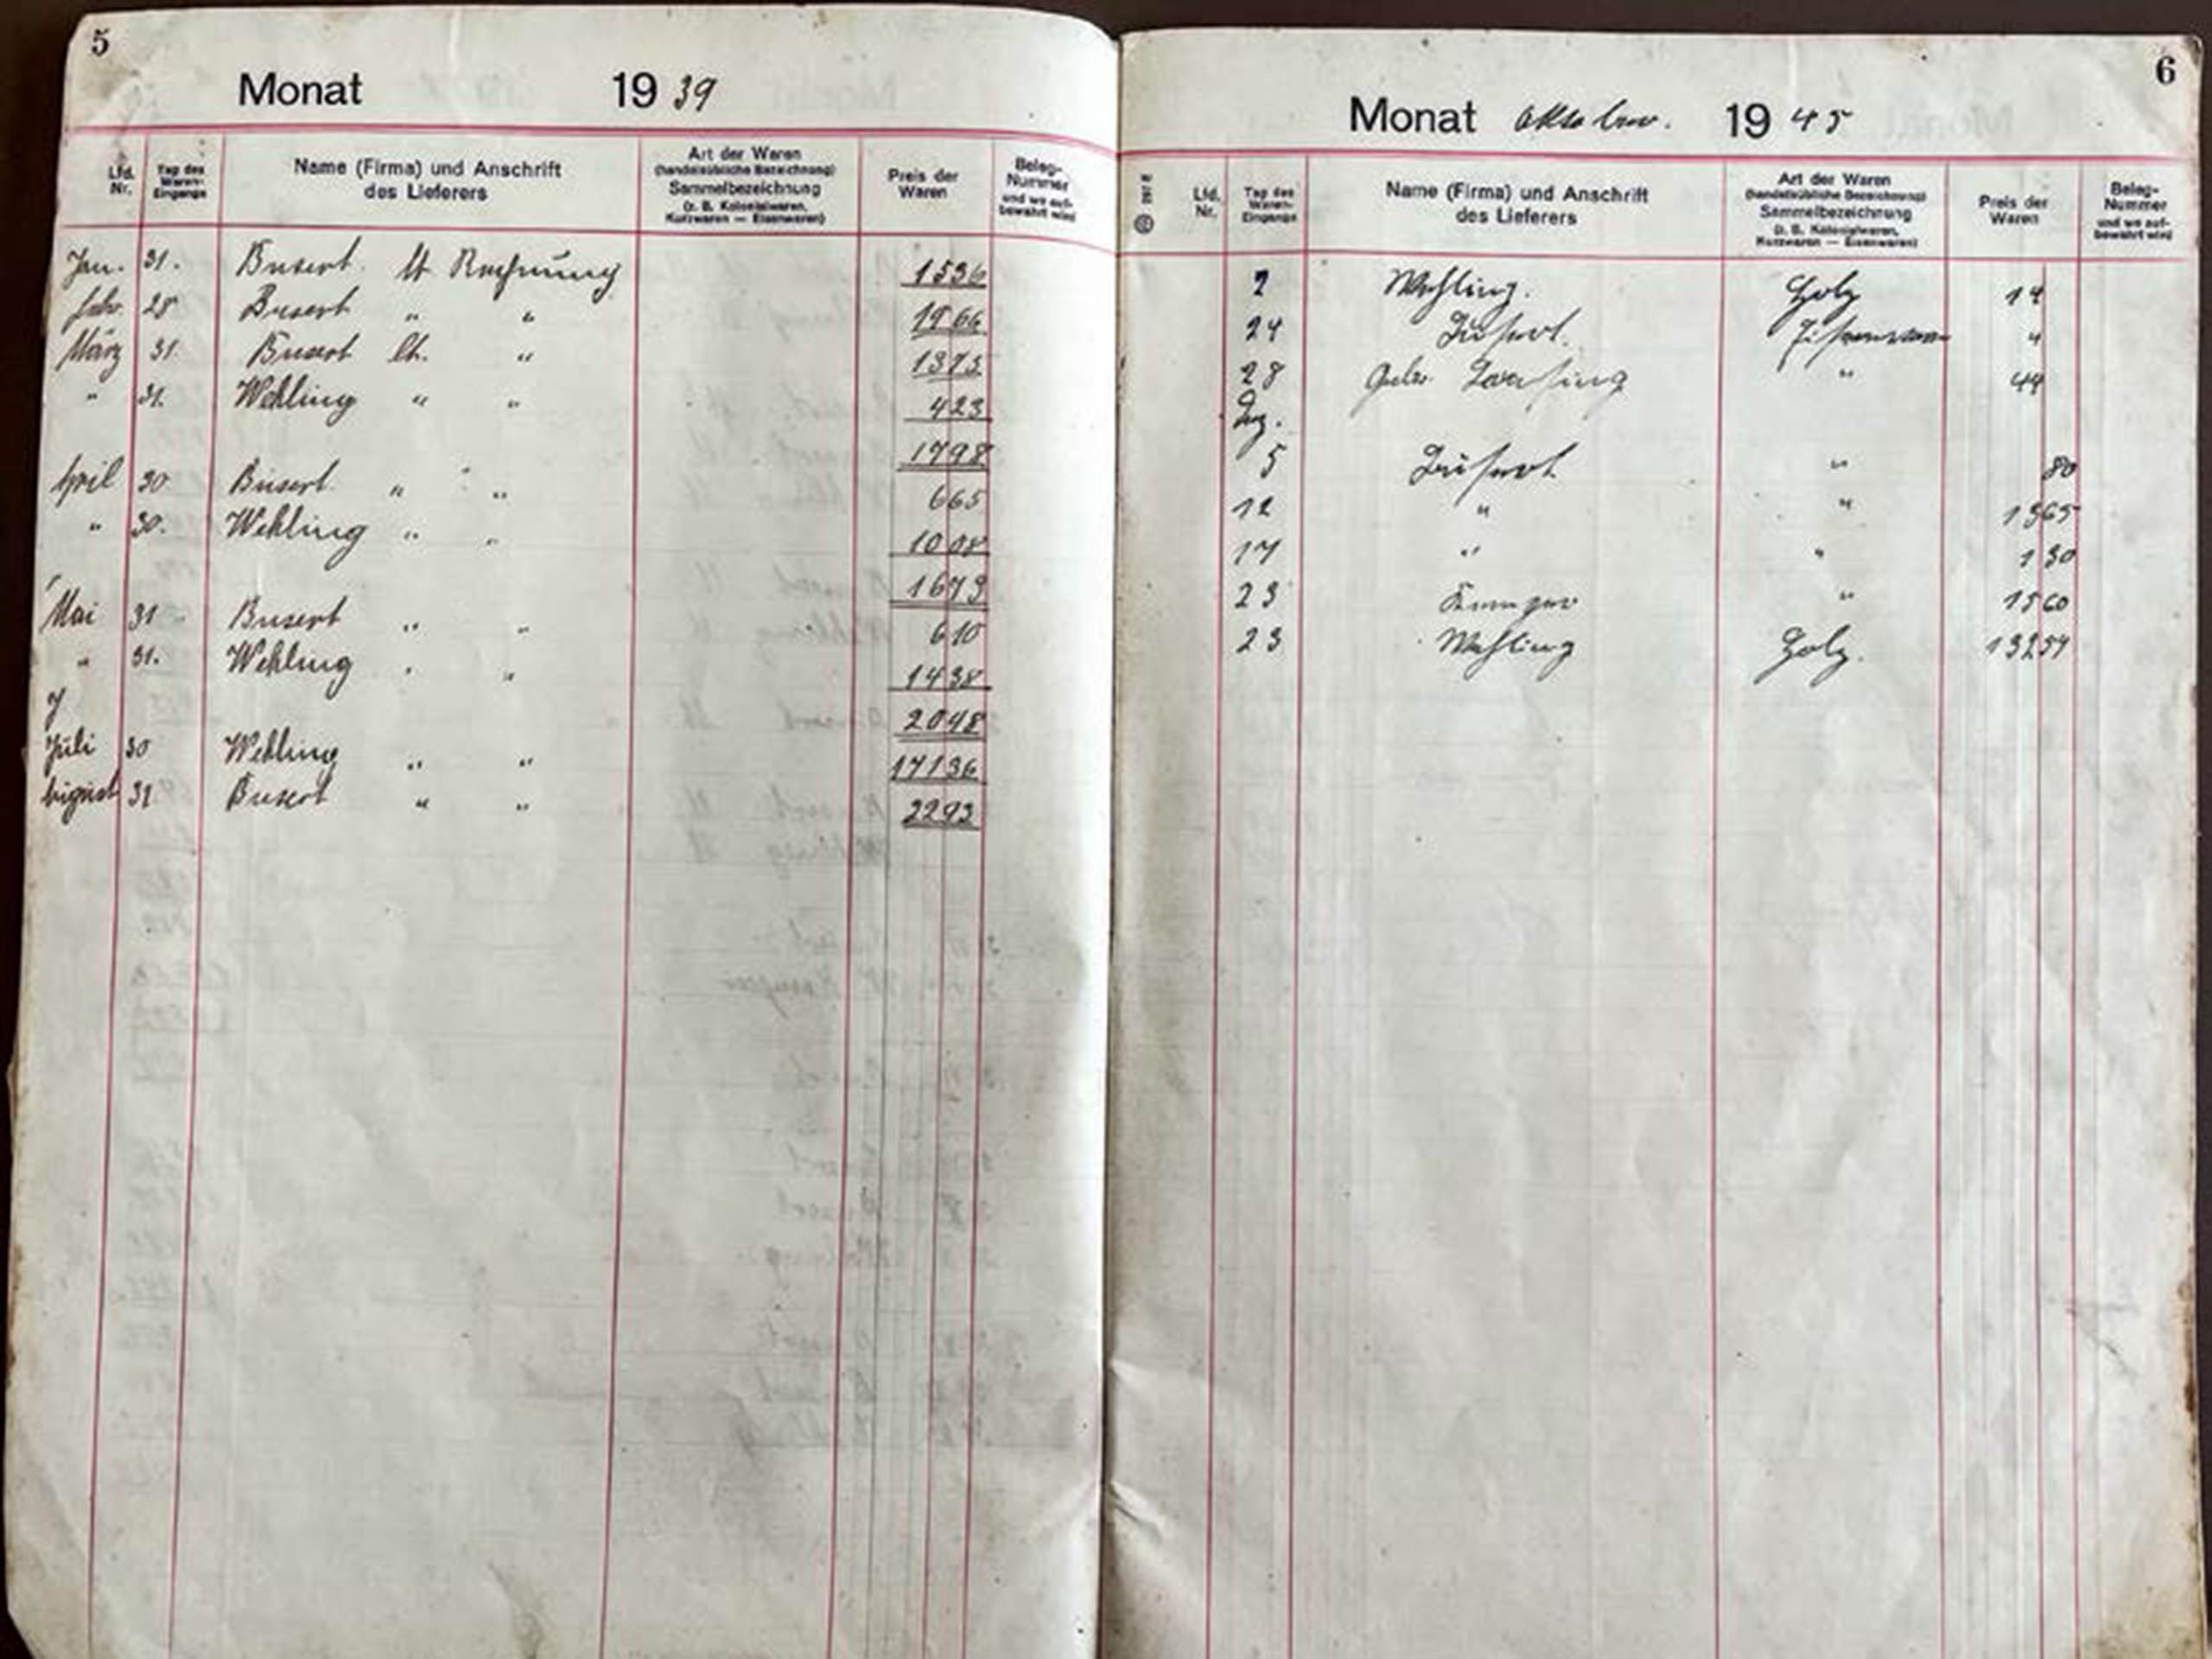 5
Monat 1939
Lfd. Nr.
Tag des Waren-Eingangs
Name (Firma) und Anschrift des Lieferers
Art der Waren (handelsübliche Bezeichnung) Sammelbezeichnung (z. B. Kolonialwaren, Kurzwaren — Eisenwaren)
Preis der Waren
Beleg-Nummer und wo aufbewahrt wird
Jan. 31. Busert lt Rechnung 1536
Febr. 28 Busert " " 1966
März 31. Busert lt. " 1373
" 31. Wehling " " 423
1798
April 30 Busert " " 665
" 30. Wehling " " 1008
1673
Mai 31 Busert " " 610
" 31. Wehling " " 1438
2048
Juli 30 Wehling " " 17136
August 31 Busert " " 2293
6
Monat Oktober. 1945
Lfd. Nr.
Tag des Waren-Eingangs
Name (Firma) und Anschrift des Lieferers
Art der Waren (handelsübliche Bezeichnung) Sammelbezeichnung (z. B. Kolonialwaren, Kurzwaren — Eisenwaren)
Preis der Waren
Beleg-Nummer und wo aufbewahrt wird
2 Wehling. Holz 14
24 Eisenwaren "
28 Gebr. " 44
Dez.
5 " 80
12 " " 1365
17 " " 130
23 " 1560
23 Wehling Holz. 13254